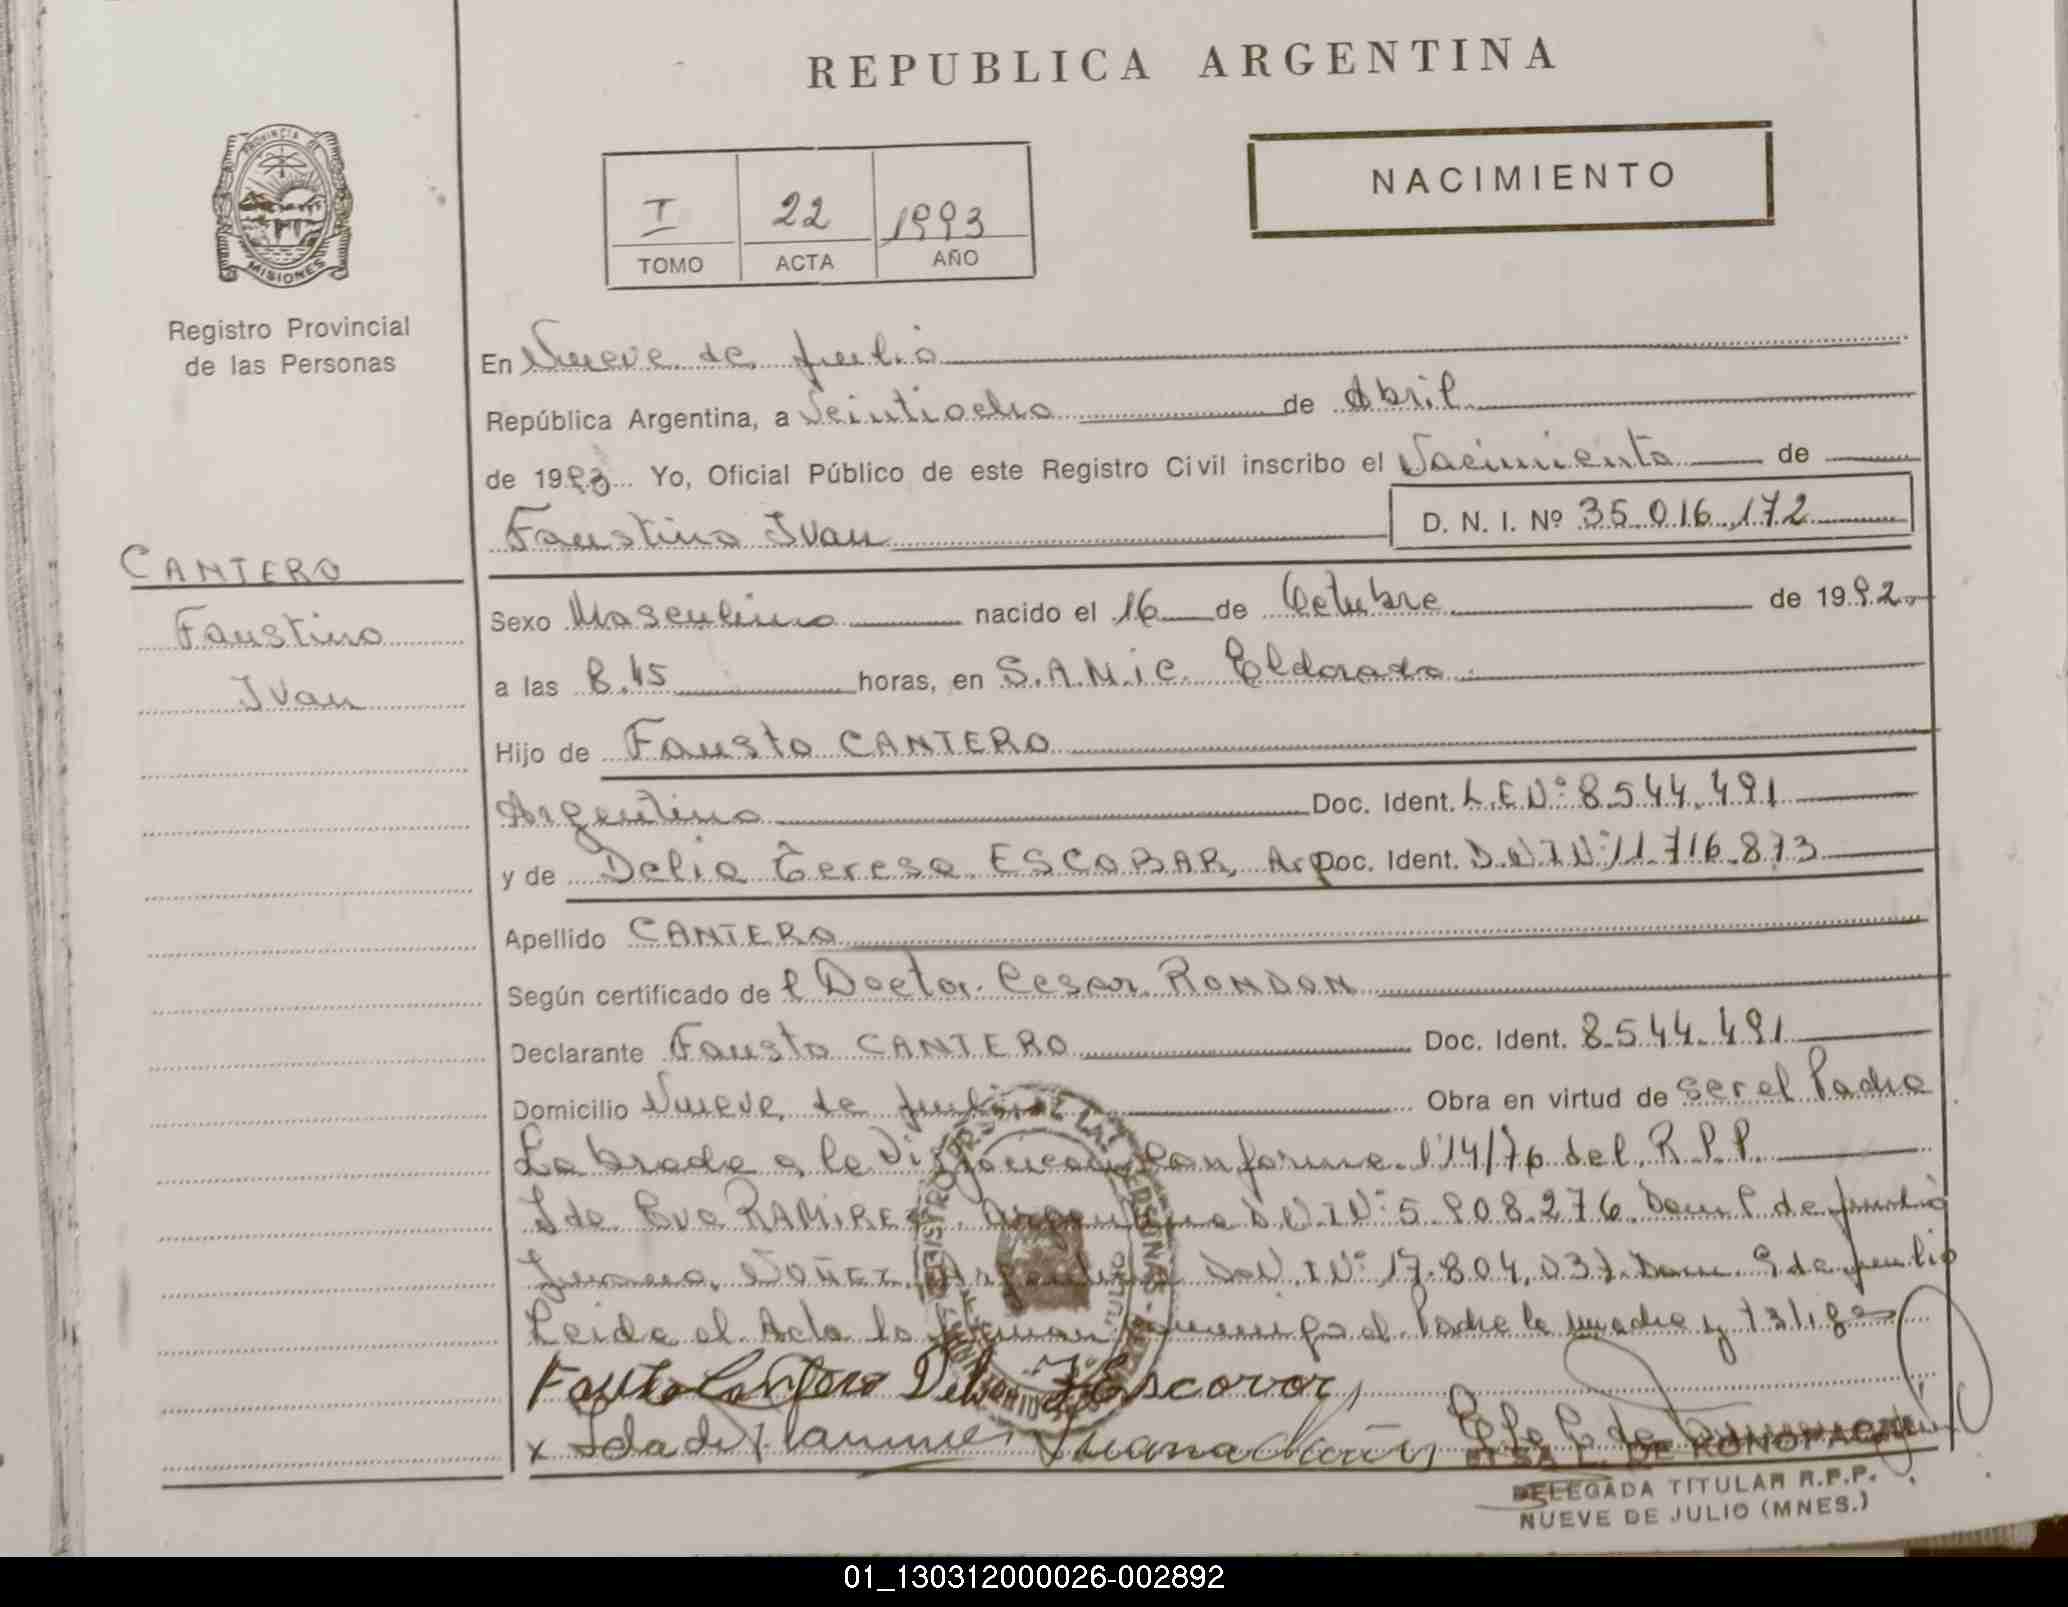 REPUBLICA ARGENTINA
NACIMIENTO
PROVINCIA DE
MISIONES
I 22 1993
TOMO ACTA AÑO
Registro Provincial
de las Personas
En Nueve de Julio
República Argentina, a Veintiocho de Abril
de 1993 Yo, Oficial Público de este Registro Civil inscribo el Nacimiento de
Faustino Ivan D. N. I. Nº 35.016.172
CANTERO
Faustino
Ivan
Sexo Masculino nacido el 16 de Octubre de 1992
a las 8.45 horas, en S.A.M.i.C. Eldorado
Hijo de Fausto CANTERO
Argentino Doc. Ident. L.E.Nº 8.544.491
y de Delia Teresa ESCOBAR, Arg Doc. Ident. D.N.I Nº 11.716.873
Apellido CANTERO
Según certificado de l Doctor Cesar RONDON
Declarante Fausto CANTERO Doc. Ident. 8.544.491
Domicilio Nueve de Julio Obra en virtud de ser el Padre
Labrada a la conforme 114/76 del R.P.P.
Ida Eva RAMIREZ, Argentina D.N.I Nº 5.908.276 Dom 9 de Julio
Juana NUÑEZ, Argentina D.N.I Nº 17.804.037 Dom. 9 de Julio
Leida el Acta la firman conmigo el Padre la madre y testigos
Fausto Cantero Delia T Escovar
x Ida de Ramirez Juana
ELSA L. DE KONOPACKI
DELEGADA TITULAR R.P.P.
NUEVE DE JULIO (MNES.)
01_130312000026-002892